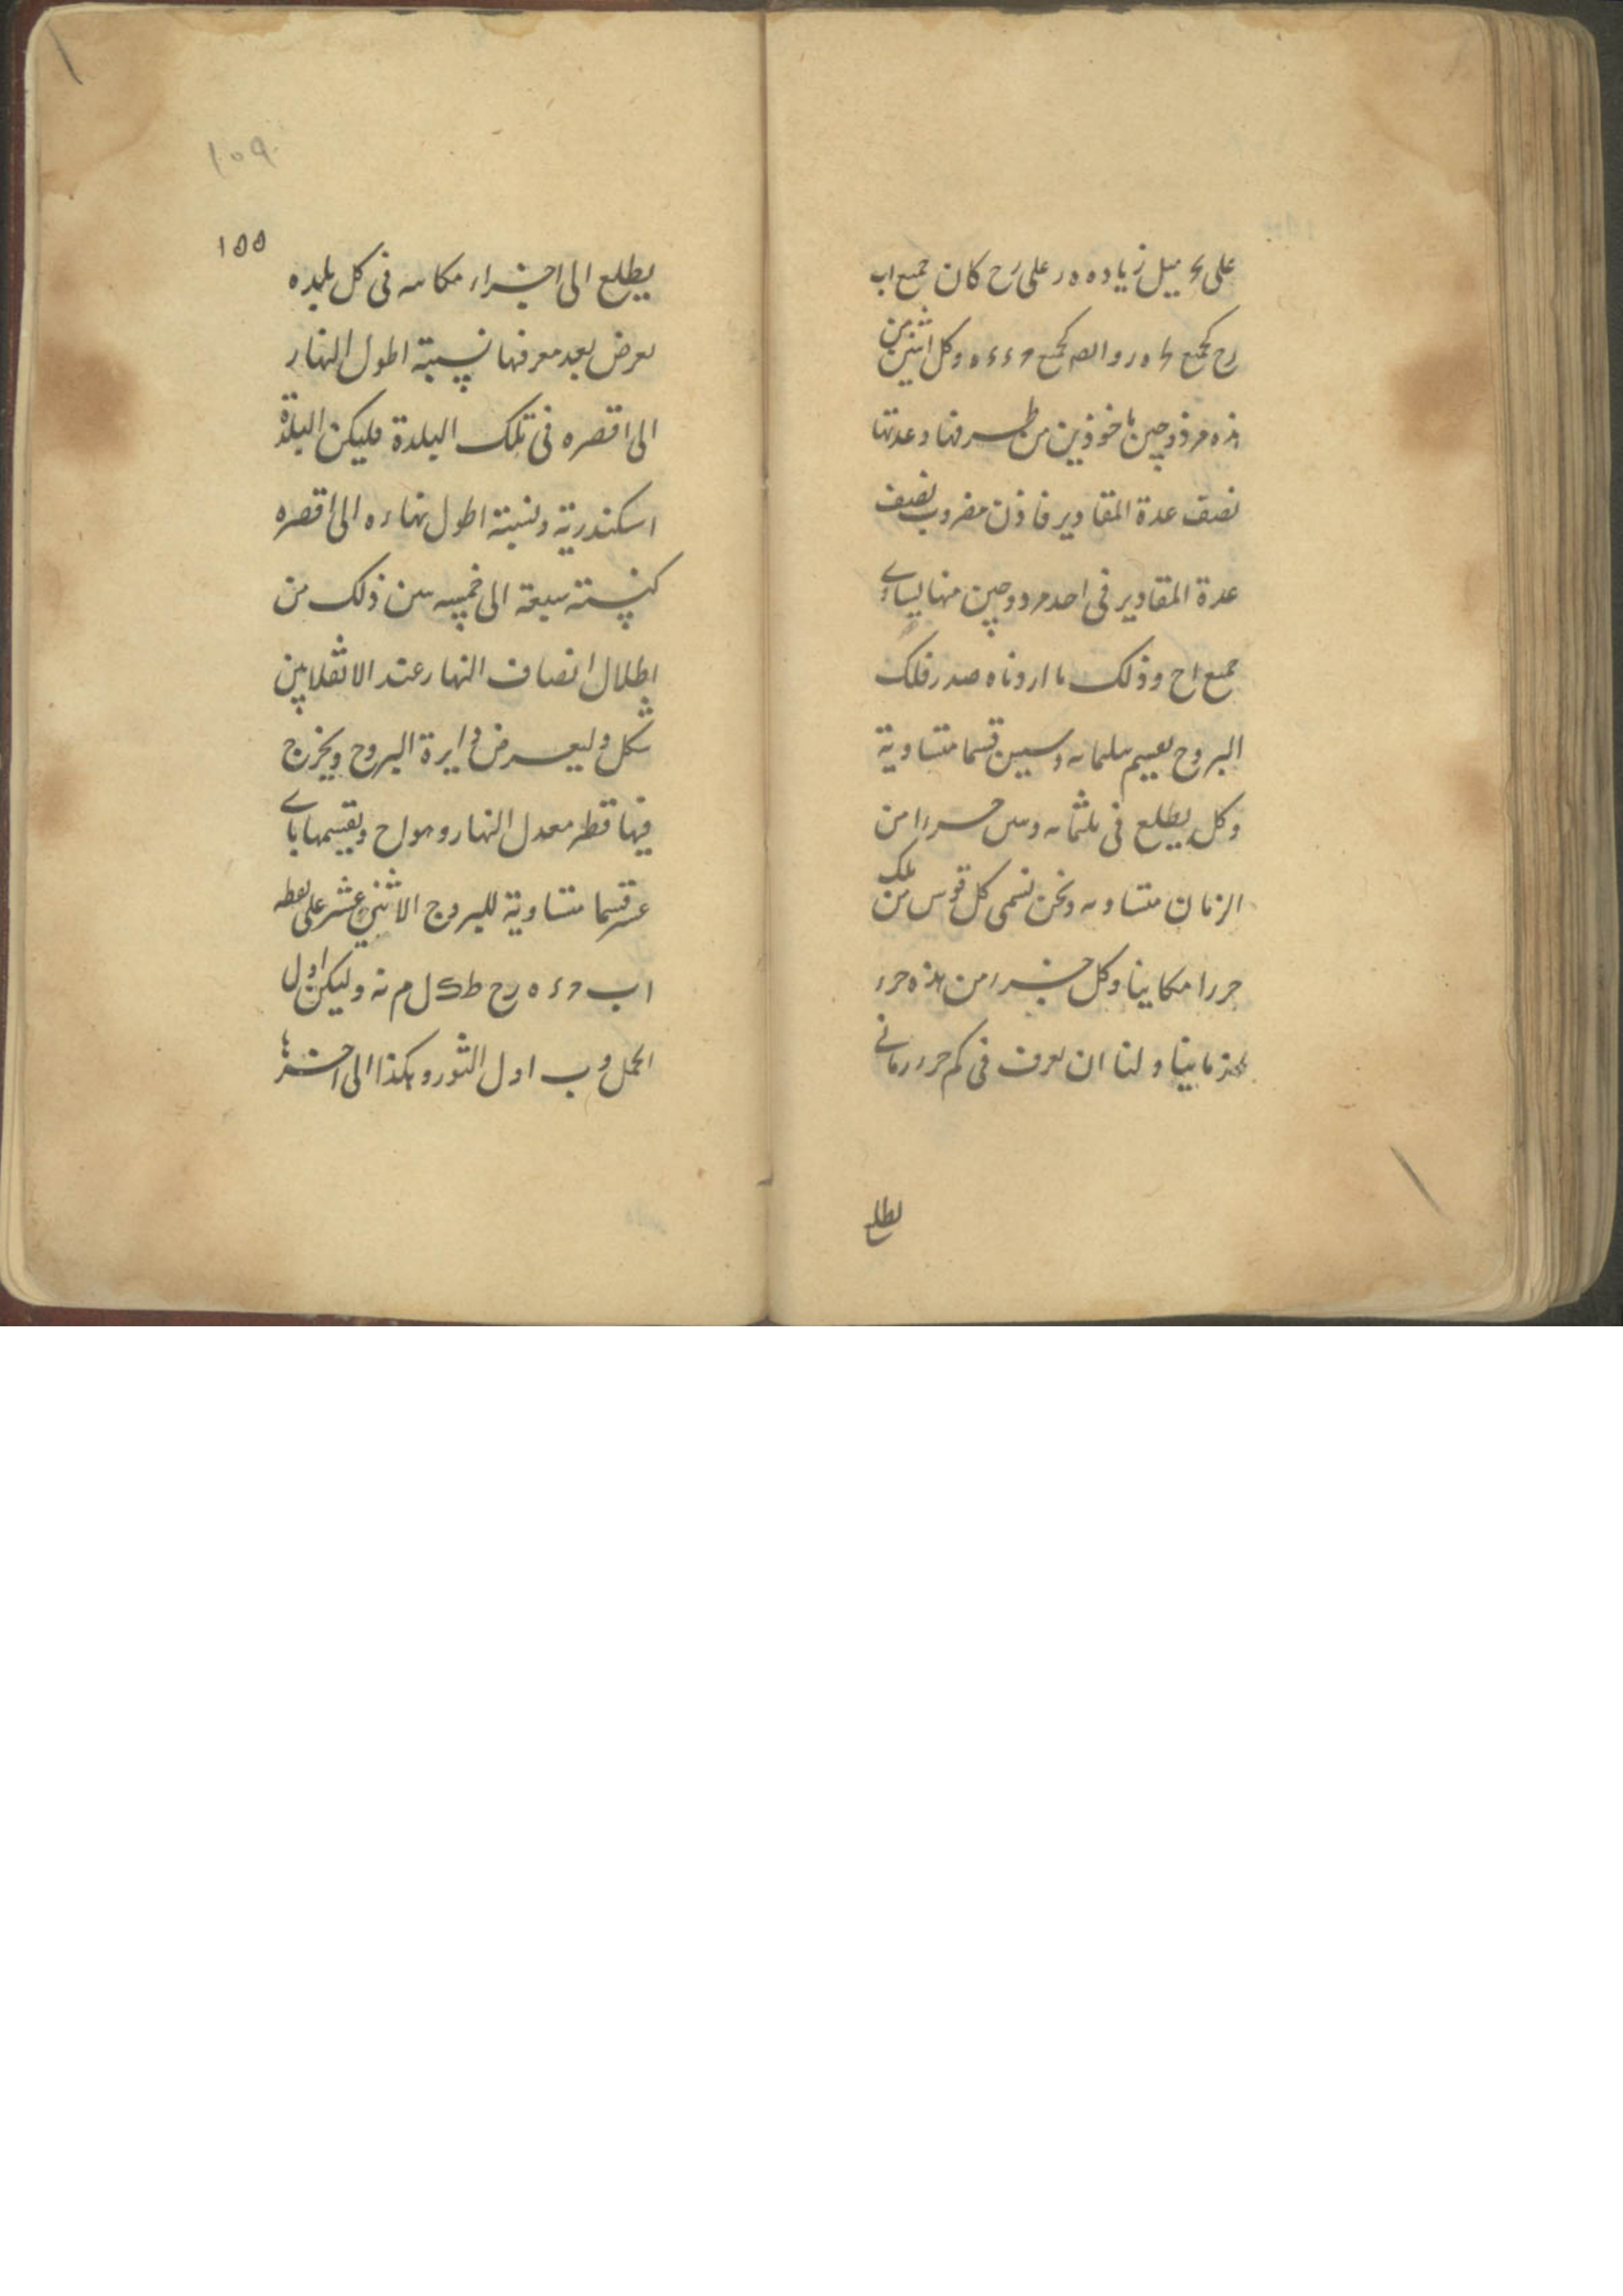 على مثل زياده ه ر على رح كان جميع اب
رح كجميع ه ر و ا كجميع ح ء ء ه وكل اثنين من
هذه مزدوجين ماخوذين من طرفها وعدتها
نصف عدة المقادير فاذن مضروب نصف
عدة المقادير في احد مزدوجين منها يساوى
جميع اح وذلك ما اردناه صدر فلك
البروج بقسم بثلثمايه وستين قسما متساوية
وكل يطلع في ثلثمايه وستين جزءا من
الزمان متساويه ونحن نسمى كل قوس من تلك
جزءا مكانيا وكل جزء من هذه جزء
زمانيا ولنا ان نعرف في كم جزء زمانى
يطلع
۱۵۹
۱۵۵
يطلع الى اجزاء مكانيه فى كل بلده
نعرض بعد معرفتها نسبة اطول النهار
الى اقصره فى تلك البلدة فليكن البلدة
اسكندرية ونسبة اطول نهاره الى اقصره
كنسبة سبعة الى خمسه تبين ذلك من
اظلال انصاف النهار عند الانقلابين
شكل وليعرض دايرة البروج ويخرج
فيها قطر معدل النهار وهو اح ونقسمها باثنى
عشر قسما متساوية للبروج الاثنى عشر على نقطه
اب ح ء ه رح ط ك ل م ن وليكن اول
الحمل و ب اول الثور وهكذا الى اخرها